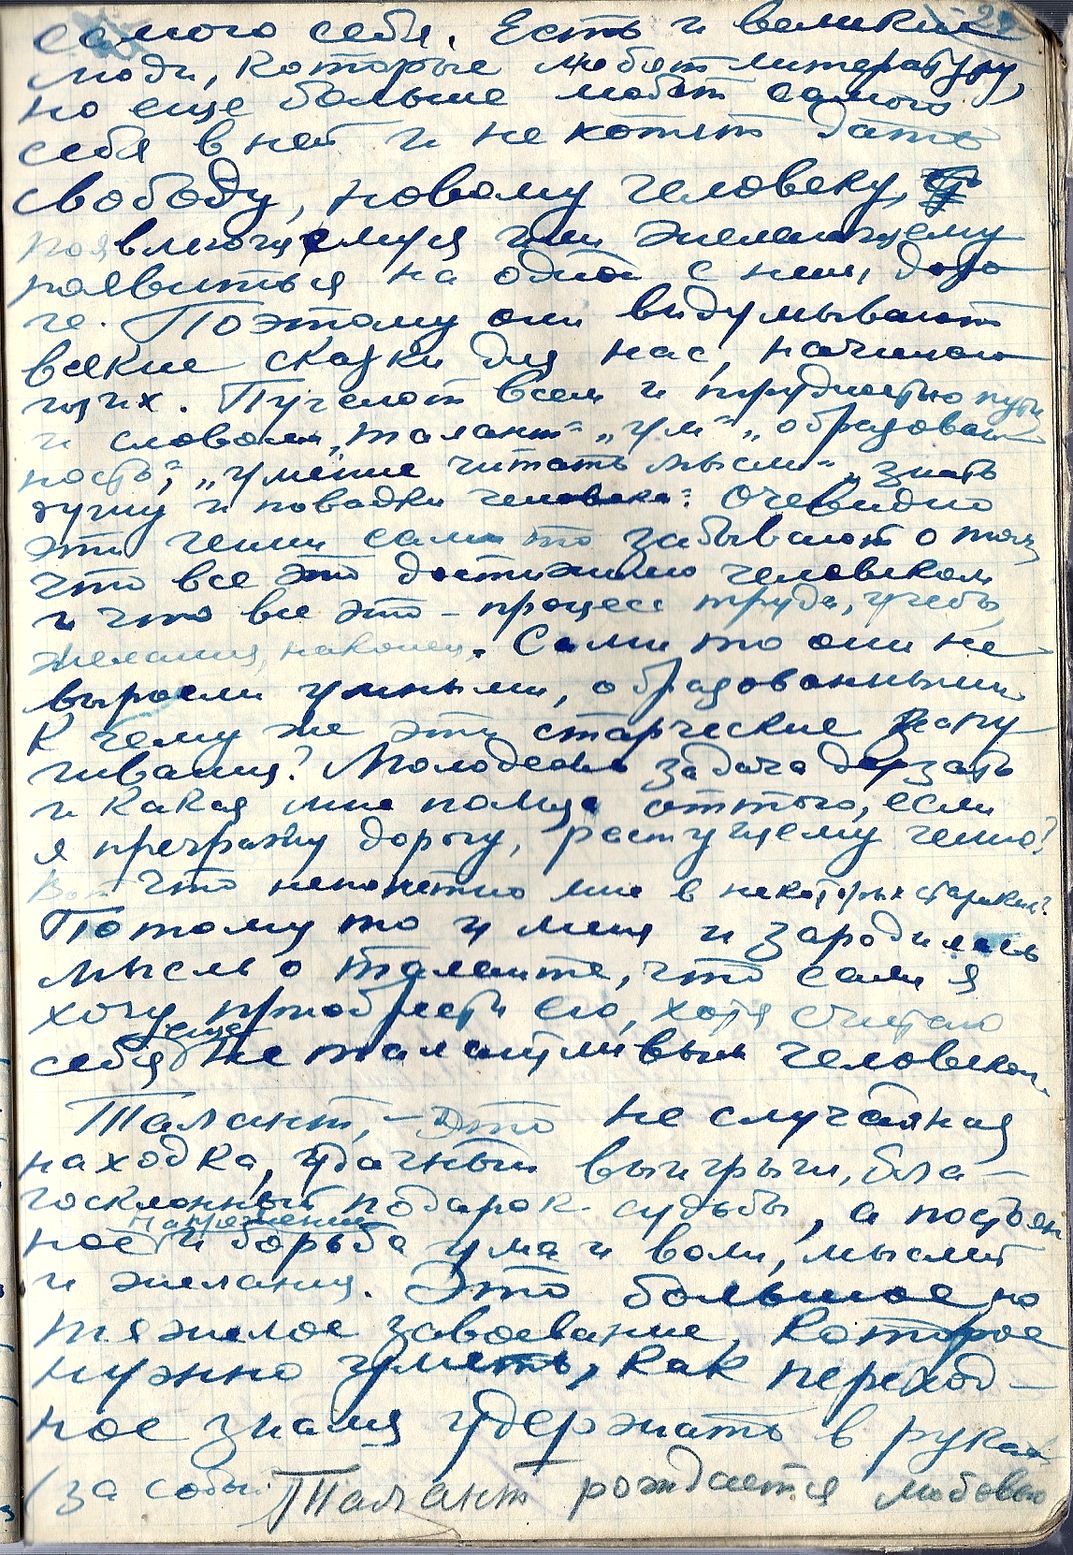 самого себя. Есть и великие
люди, которые любят литературу,
но еще больше любят самого
себя в ней и не хотят дать
свободу, новому человеку,
появляющемуся или желающему
появиться на одной с ним, доро
ге. Поэтому они выдумывают
всякие сказки для нас, начинаю
щих. Пугают всем и трудностью пути
и словами „талант" „ум" „образован
ность", „умение читать мысли", знать
душу и повадки человека". Очевидно
эти гении сами то забывают о том,
что все это достижимо человеком
и что все это - процесс труда, учебы,
желания, наконец. Сами то они не
выросли умными, образованными
К чему же эти старческие
чивания? Молодежи задача дерзать
и какая мне польза оттого, если
я прегражу дорогу, растущему гению?
Вот что непонятно мне в некоторых стариках?
Потому то у меня и зародилась
мысль о таланте, что сам я
хочу приобрести его, хотя считаю
еще
себя не талантливым человеком.
Талант, - это не случайная
находка, удачный выигрыш, бла-
госклонный подарок судьбы, а постоян
напряжение
ное и борьба ума и воли, мыслей
и желания. Это большое но
тяжелое завоевание, которое
нужно уметь, как переход-
ное знамя удержать в руках
(за собой Талант рождается любовью